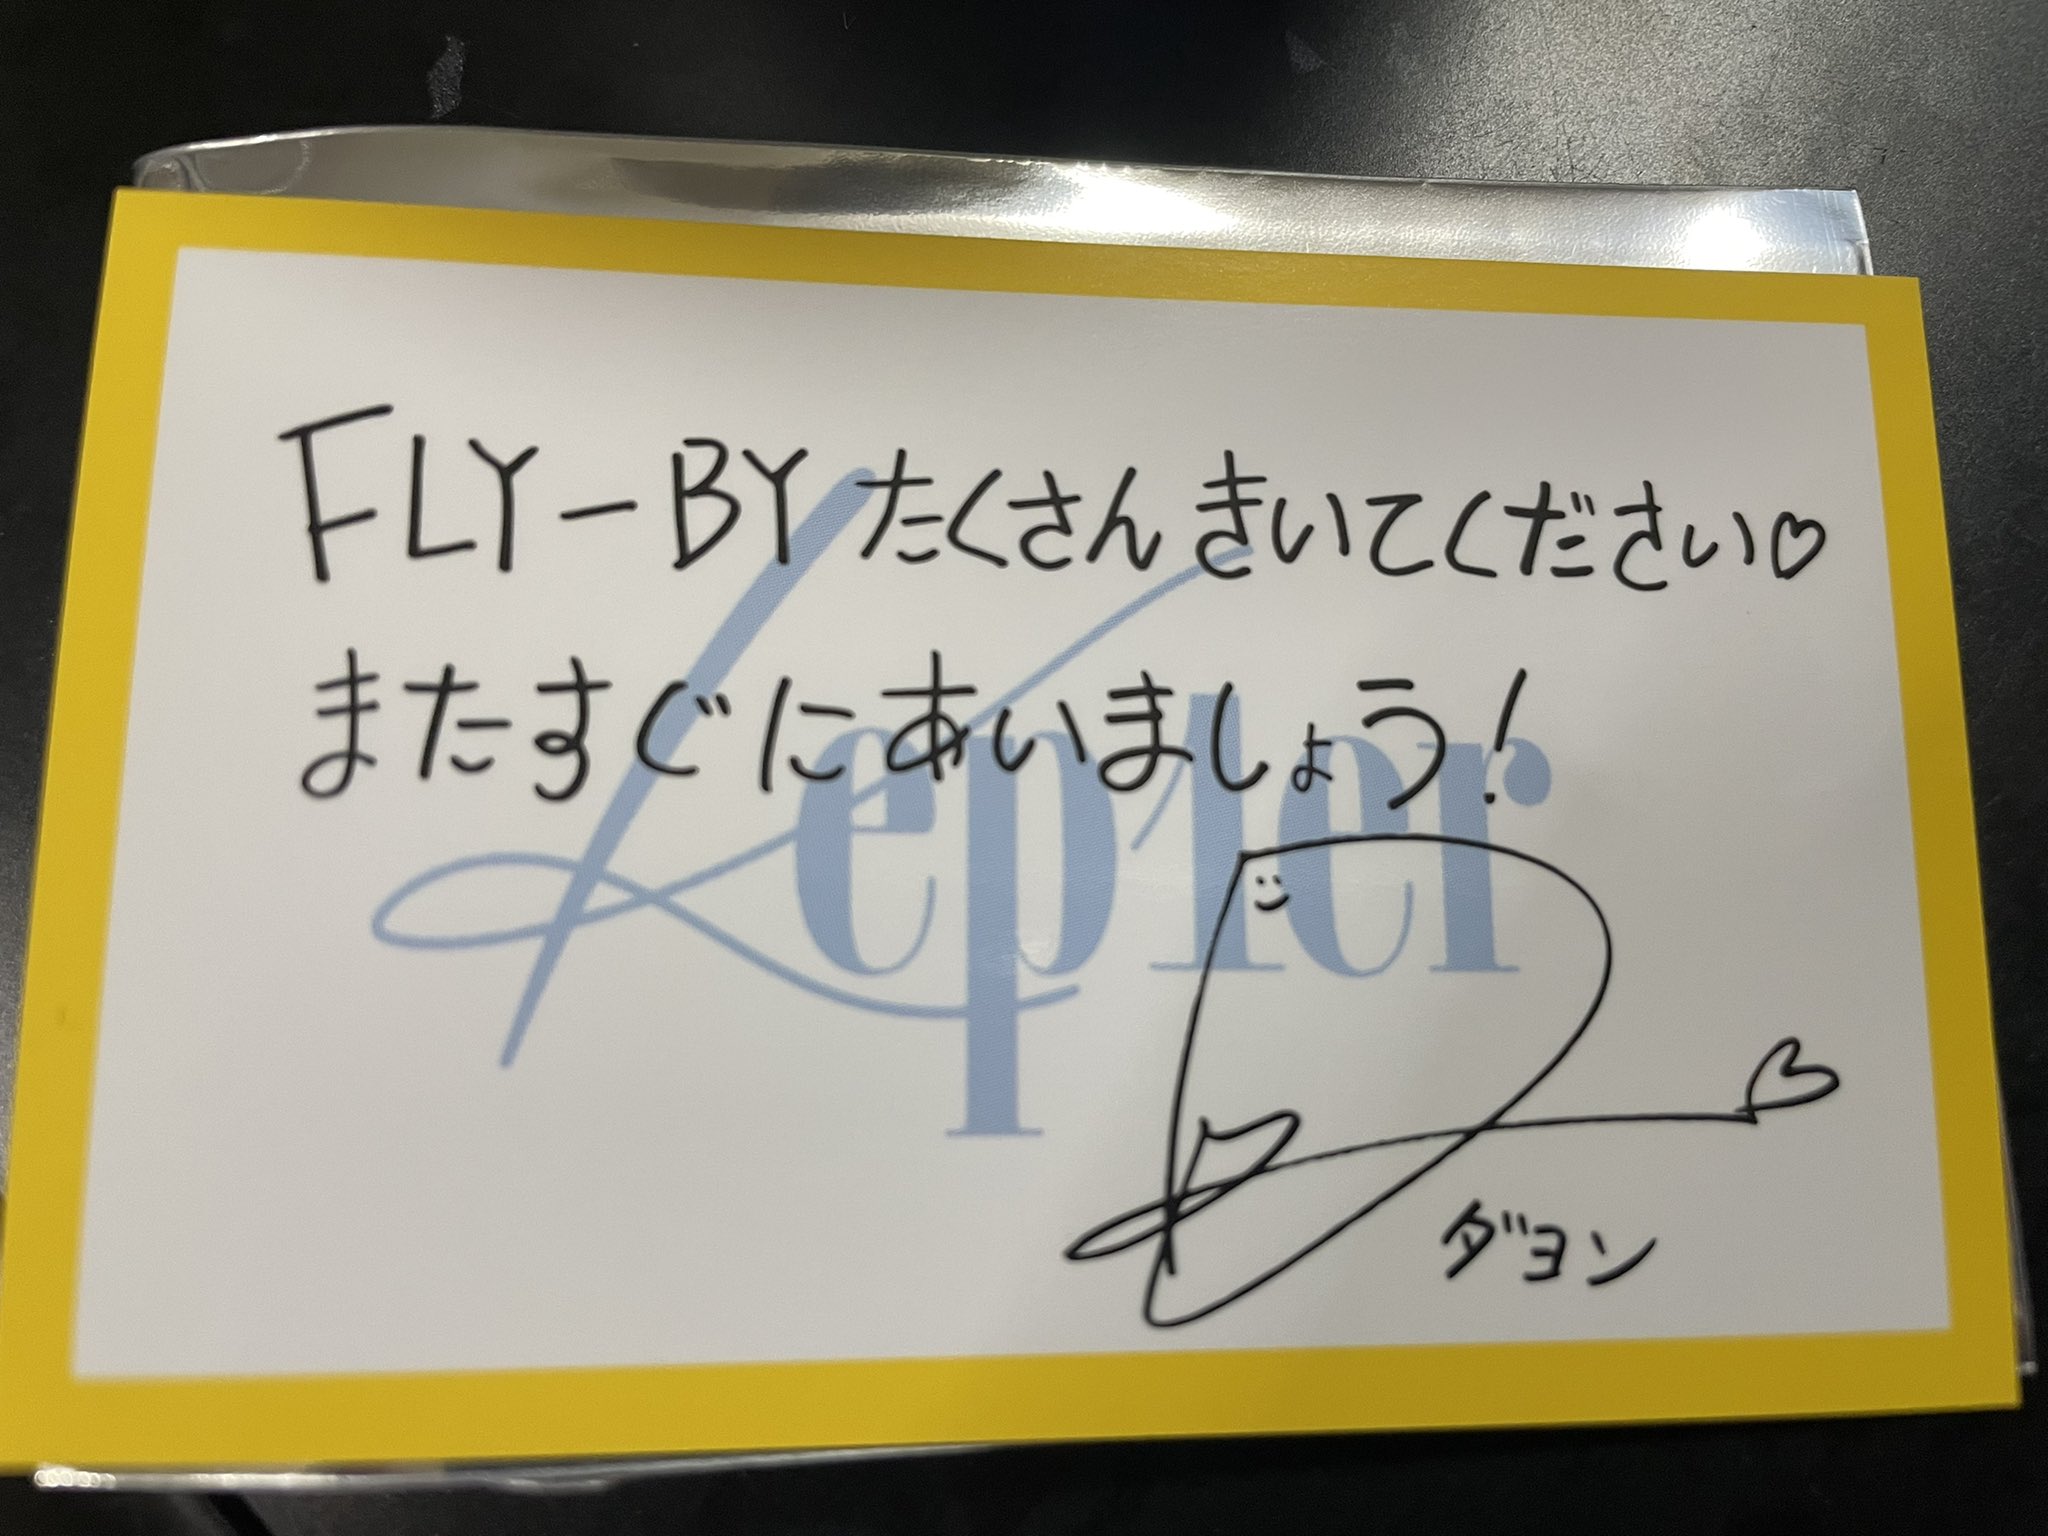 FLY-BY たくさん きいてください♡
また すぐに あいましょう!
Kep1er
ダヨン